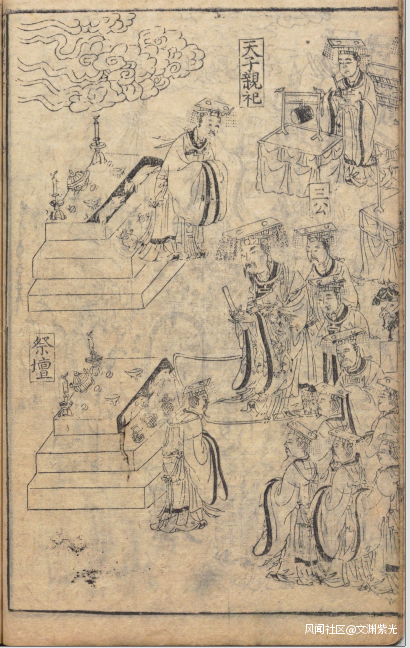 天子親祀
三公
祭壇
风闻社区@文渊紫光